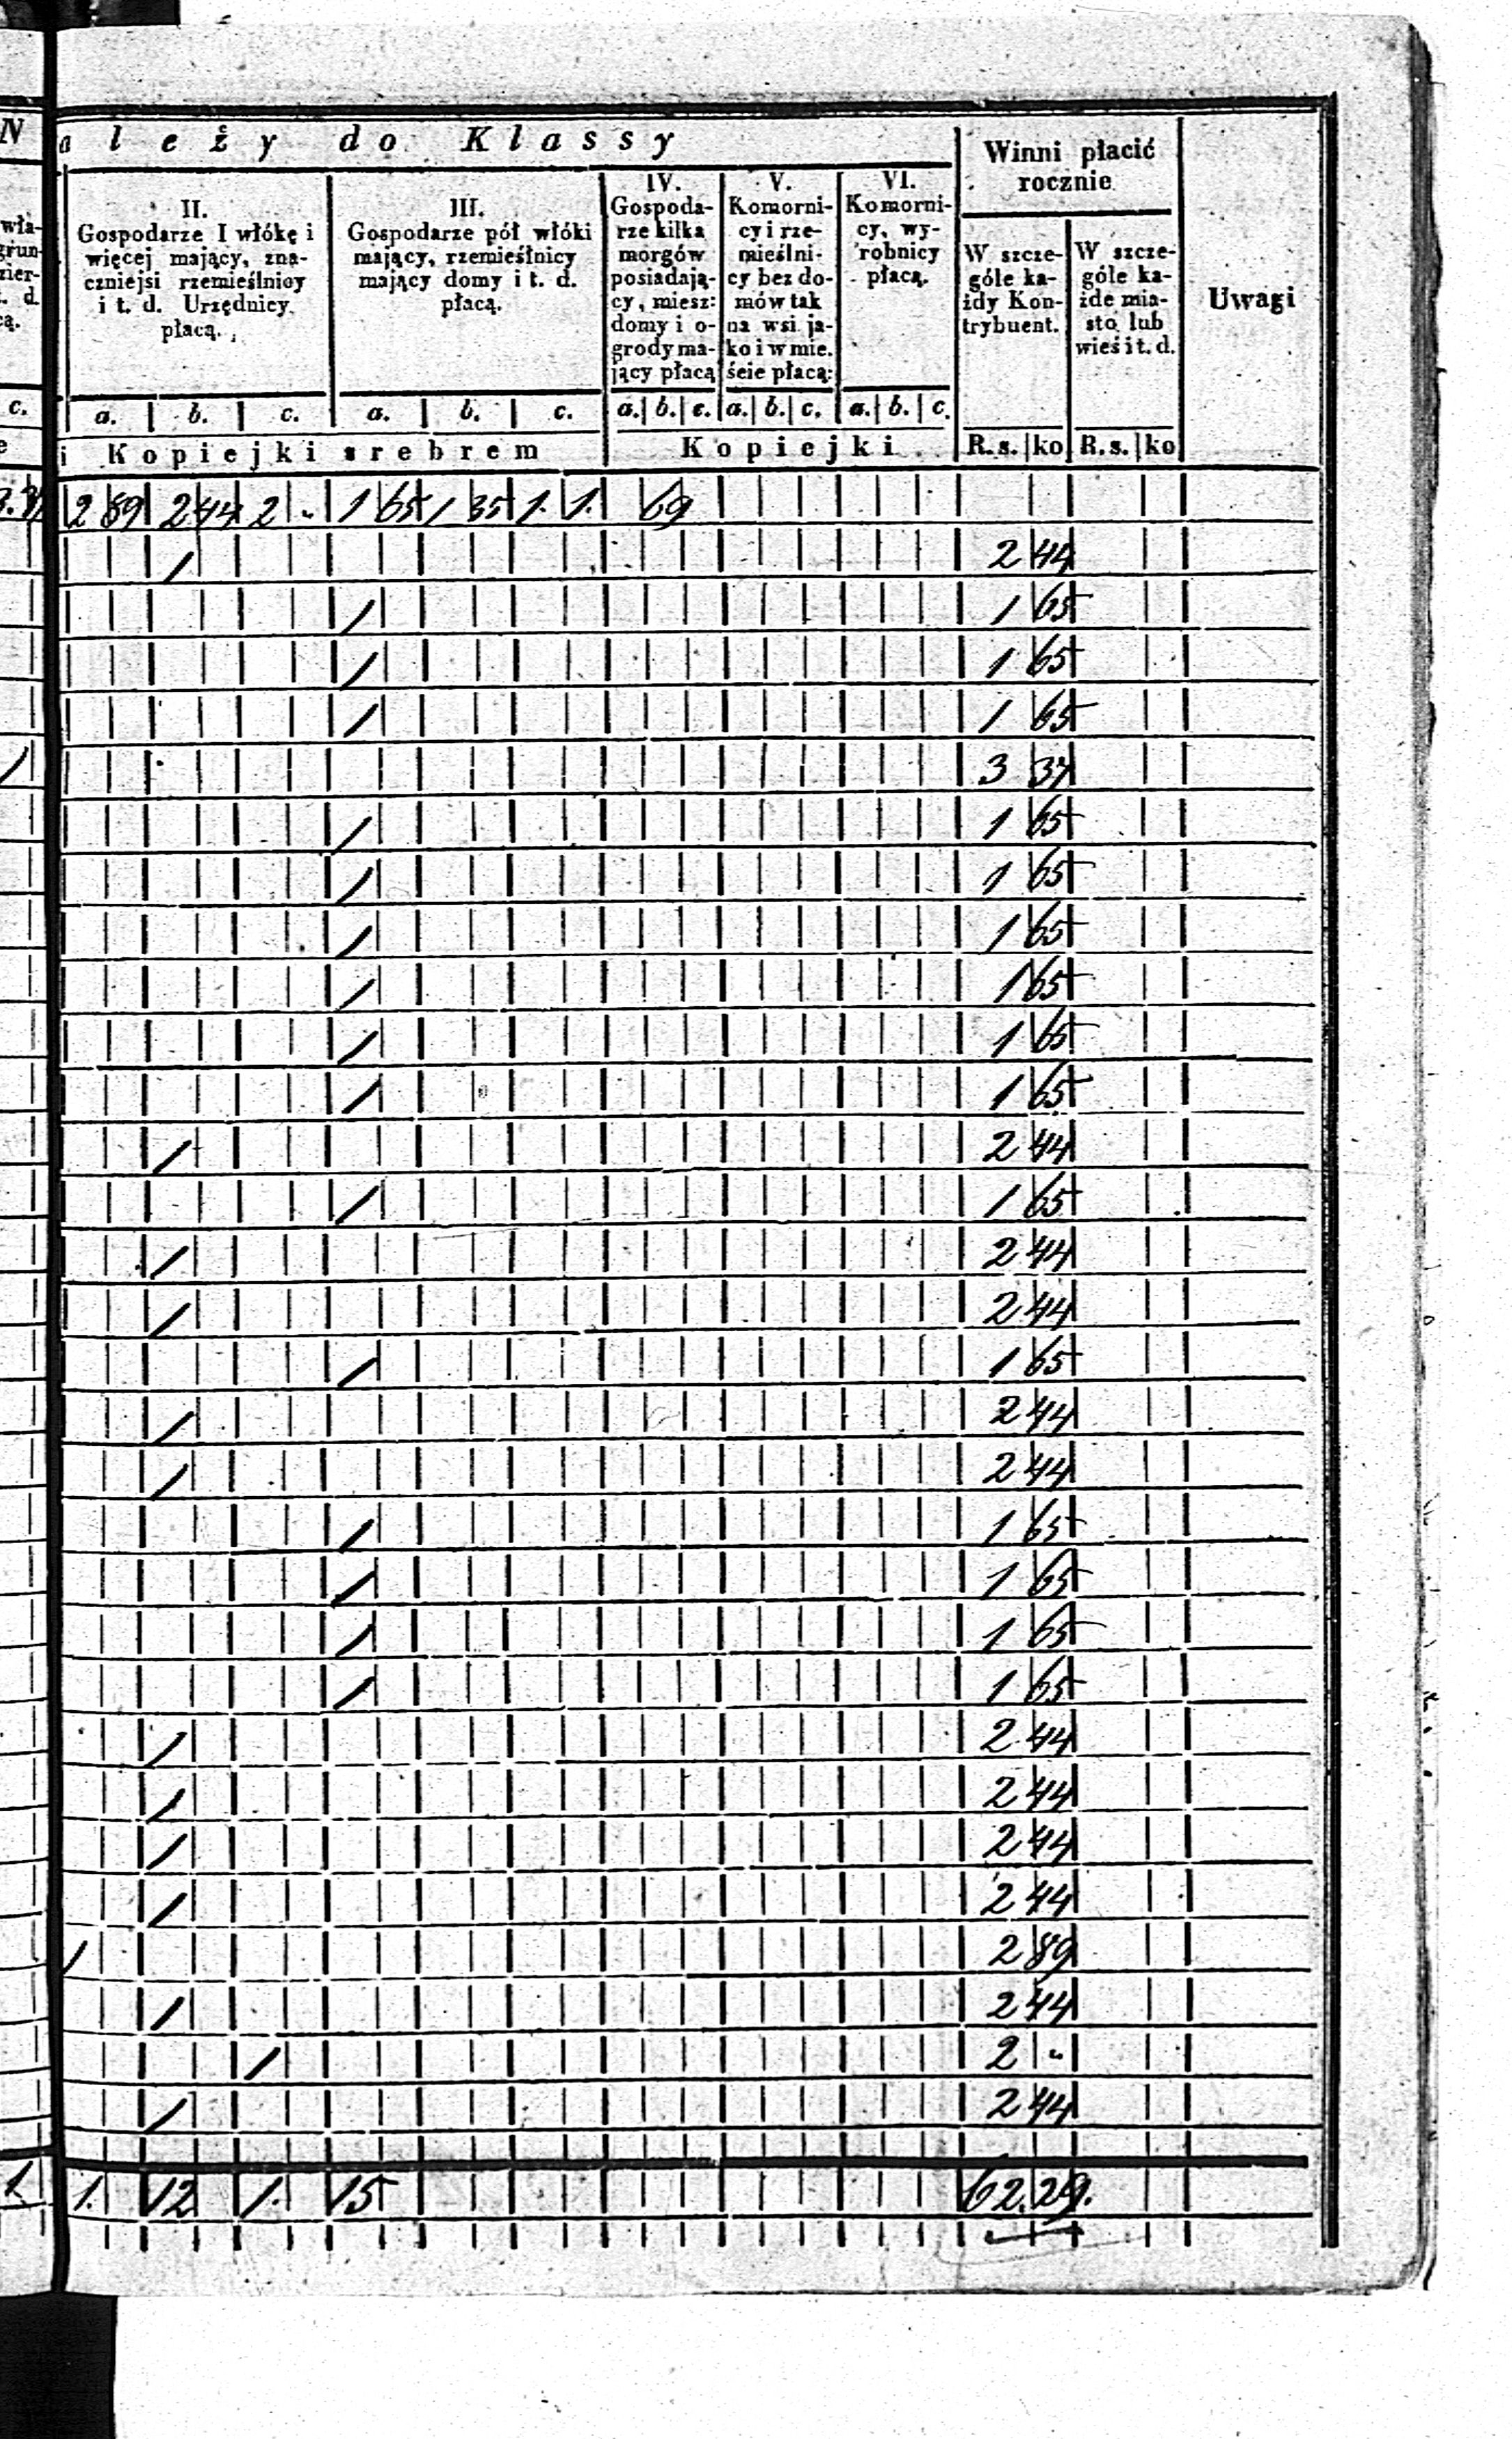 N
a l e ż y   d o   K l a s s y
Winni płacić
rocznie
Uwagi
II.
Gospodarze I włókę i
więcej mający, zna-
czniejsi rzemieślnicy
i t. d. Urzędnicy
płacą.
III.
Gospodarze pół włóki
mający, rzemieślnicy
mający domy i t. d.
płacą.
IV.
Gospoda-
rze kilka
morgów
posiadają-
cy, miesz:
domy i o-
grody ma-
jący płacą
V.
Komorni-
cy i rze-
mieślni-
cy bez do-
mów tak
na wsi ja-
ko i w mie.
ście płacą:
VI.
Komorni-
cy, wy-
robnicy
płacą.
W szcze-
góle ka-
żdy Kon-
trybuent.
W szcze-
góle ka-
żde mia-
sto lub
wieś i t. d.
wła-
grun-
zier-
t. d
cą.
c. a. b. c. a. b. c. a. b. c. a. b. c. a. b. c.
e i Kopiejki srebrem Kopiejki R.s. ko R.s. ko
2 89 2 44 2 - 1 65 1 35 1. 1. 69
/ 2 44
/ 1 65
/ 1 65
/ 1 65
/ 3 37
/ 1 65
/ 1 65
/ 1 65
/ 1 65
/ 1 65
/ 1 65
/ 2 44
/ 1 65
/ 2 44
/ 2 44
/ 1 65
/ 2 44
/ 2 44
/ 1 65
/ 1 65
/ 1 65
/ 1 65
/ 2 44
/ 2 44
/ 2 44
/ 2 44
/ 2 89
/ 2 44
/ 2 -
/ 2 44
1 1. 12 1. 15 62.29.